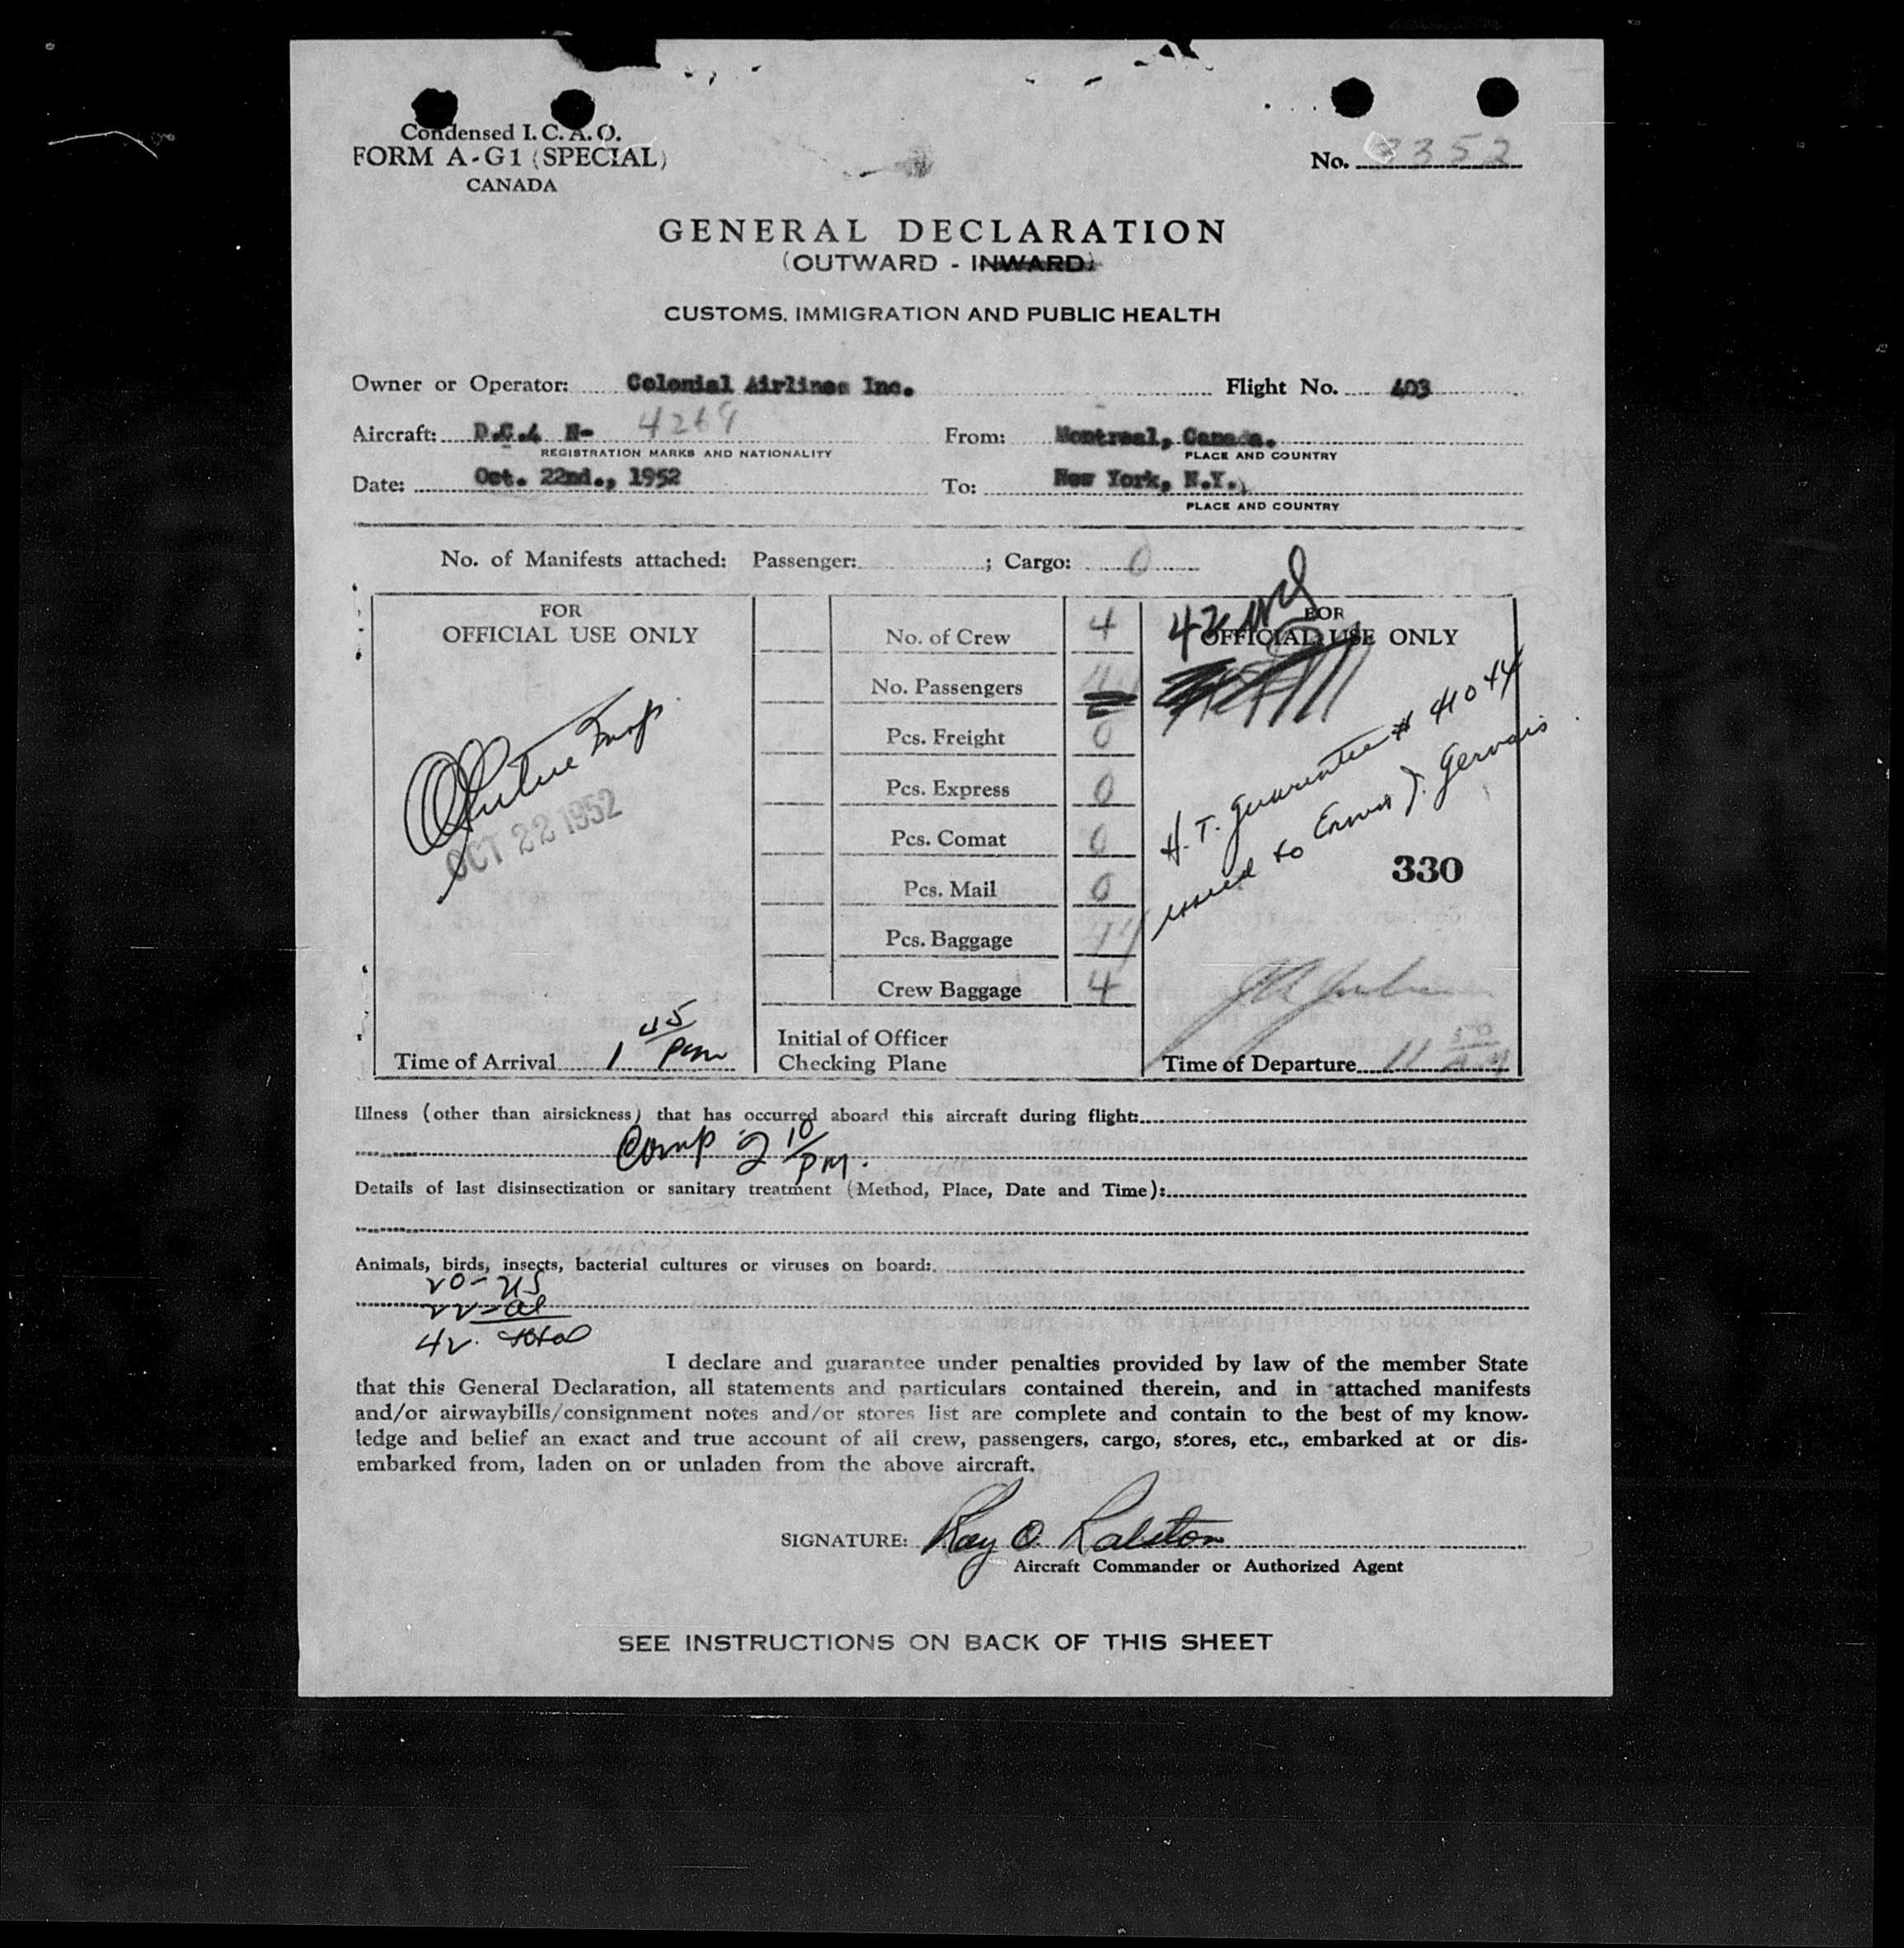 Condensed I. C. A. O.
FORM A-G1 (SPECIAL)
CANADA
No. 3352
GENERAL DECLARATION
(OUTWARD - INWARD)
CUSTOMS, IMMIGRATION AND PUBLIC HEALTH
Owner or Operator: Colonial Airlines Inc. Flight No. 403
Aircraft: D.C.4 N- 4269 From: Montreal, Canada.
REGISTRATION MARKS AND NATIONALITY PLACE AND COUNTRY
Date: Oct. 22nd., 1952 To: New York, N.Y.
PLACE AND COUNTRY
No. of Manifests attached: Passenger: ; Cargo: 0
FOR
OFFICIAL USE ONLY
OCT 22 1952
Time of Arrival 1 45/pm
No. of Crew 4
No. Passengers
Pcs. Freight 0
Pcs. Express 0
Pcs. Comat 0
Pcs. Mail 0
Pcs. Baggage
Crew Baggage 4
Initial of Officer
Checking Plane
42
FOR
OFFICIAL USE ONLY
H. T. Guarantee # 41044
issued to J. Gervais
330
Time of Departure 11 50
Illness (other than airsickness) that has occurred aboard this aircraft during flight:
Comp 2 10/PM.
Details of last disinsectization or sanitary treatment (Method, Place, Date and Time):
Animals, birds, insects, bacterial cultures or viruses on board:
20 - US
22 - al
42. total
I declare and guarantee under penalties provided by law of the member State
that this General Declaration, all statements and particulars contained therein, and in attached manifests
and/or airwaybills/consignment notes and/or stores list are complete and contain to the best of my know-
ledge and belief an exact and true account of all crew, passengers, cargo, stores, etc., embarked at or dis-
embarked from, laden on or unladen from the above aircraft.
SIGNATURE: Ray O. Ralston
Aircraft Commander or Authorized Agent
SEE INSTRUCTIONS ON BACK OF THIS SHEET